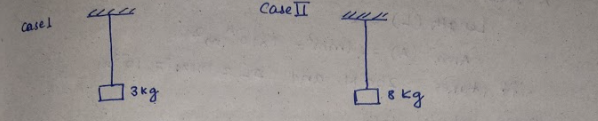 Case I
Case II
3kg
8 kg